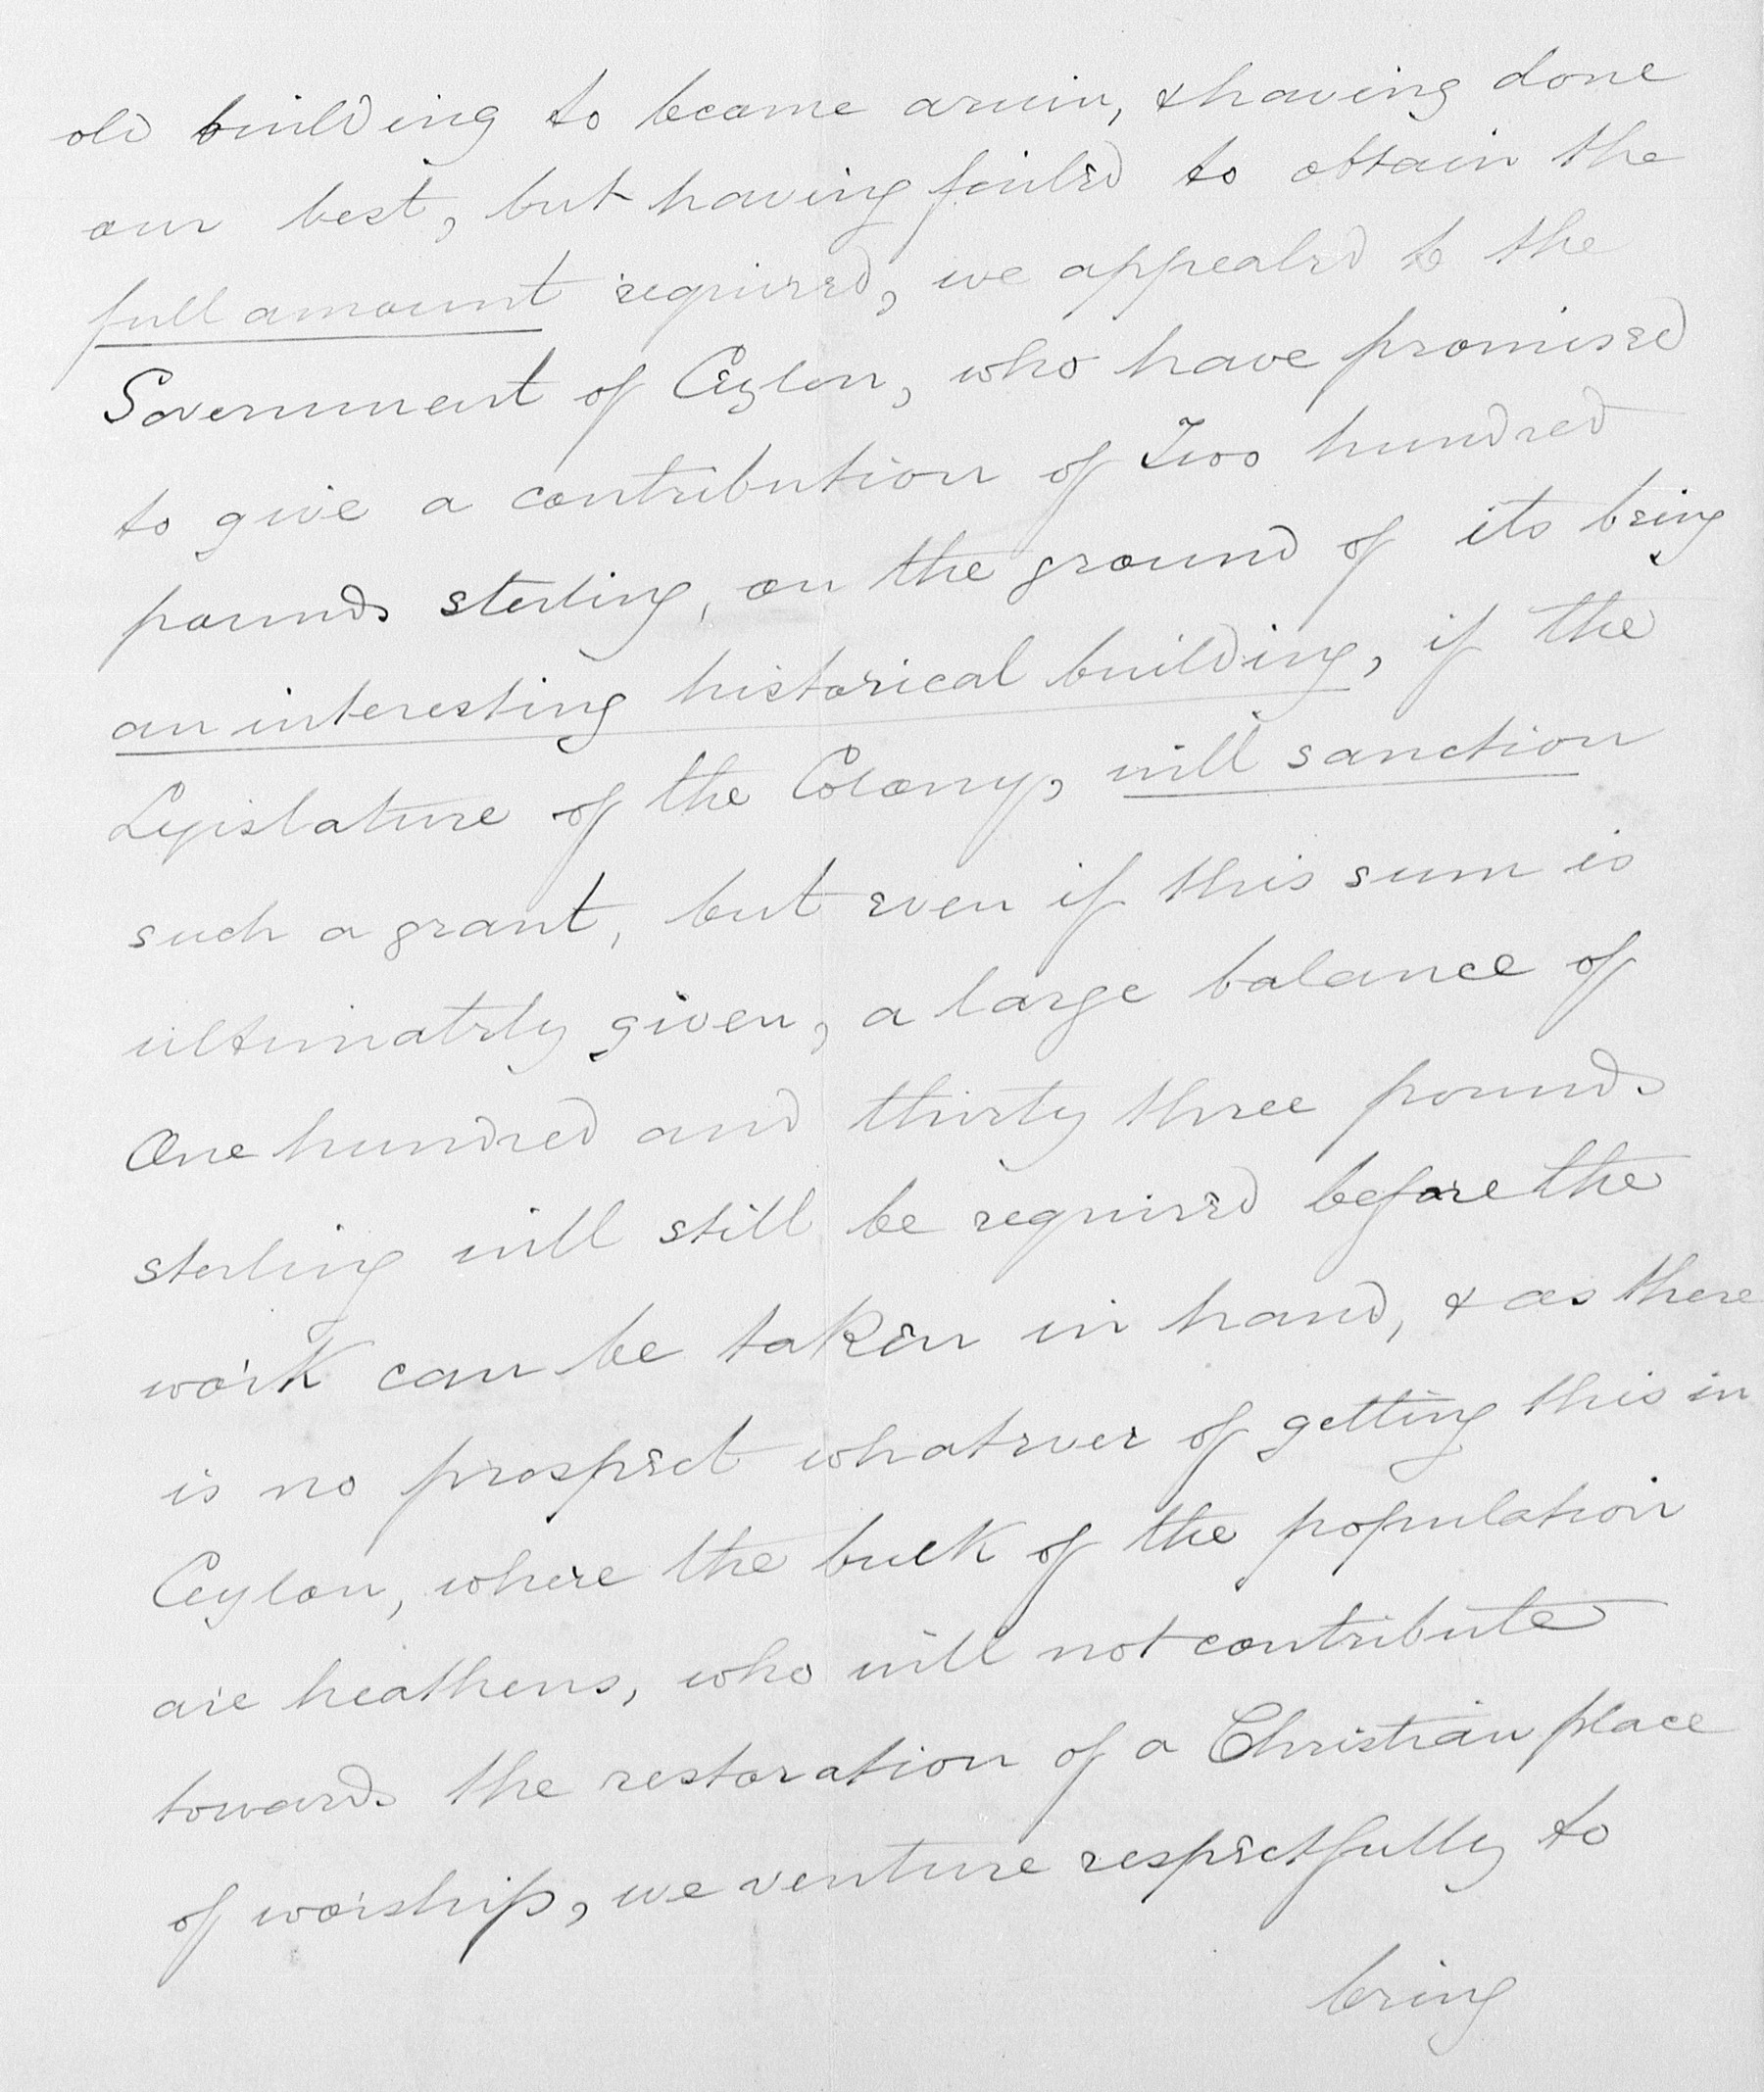 old building to become a ruin, & having done
our best, but having failed to obtain the
full amount required, we appealed to the
Government of Ceylon, who have promised
to give a contribution of Two hundred
pounds sterling, on the ground of its being
an interesting historical building, if the
Legislature of the Colony, will sanction
such a grant, but even if this sum is
ultimately given, a large balance of
One hundred and thirty three pounds
sterling will still be required before the
work can be taken in hand, & as there
is no prospect whatever of getting this in
Ceylon, where the bulk of the population
are heathens, who will not contribute
towards the restoration of a Christian place
of worship, we venture respectfully to
bring